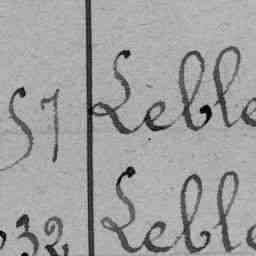 57 Leble
32 Leble